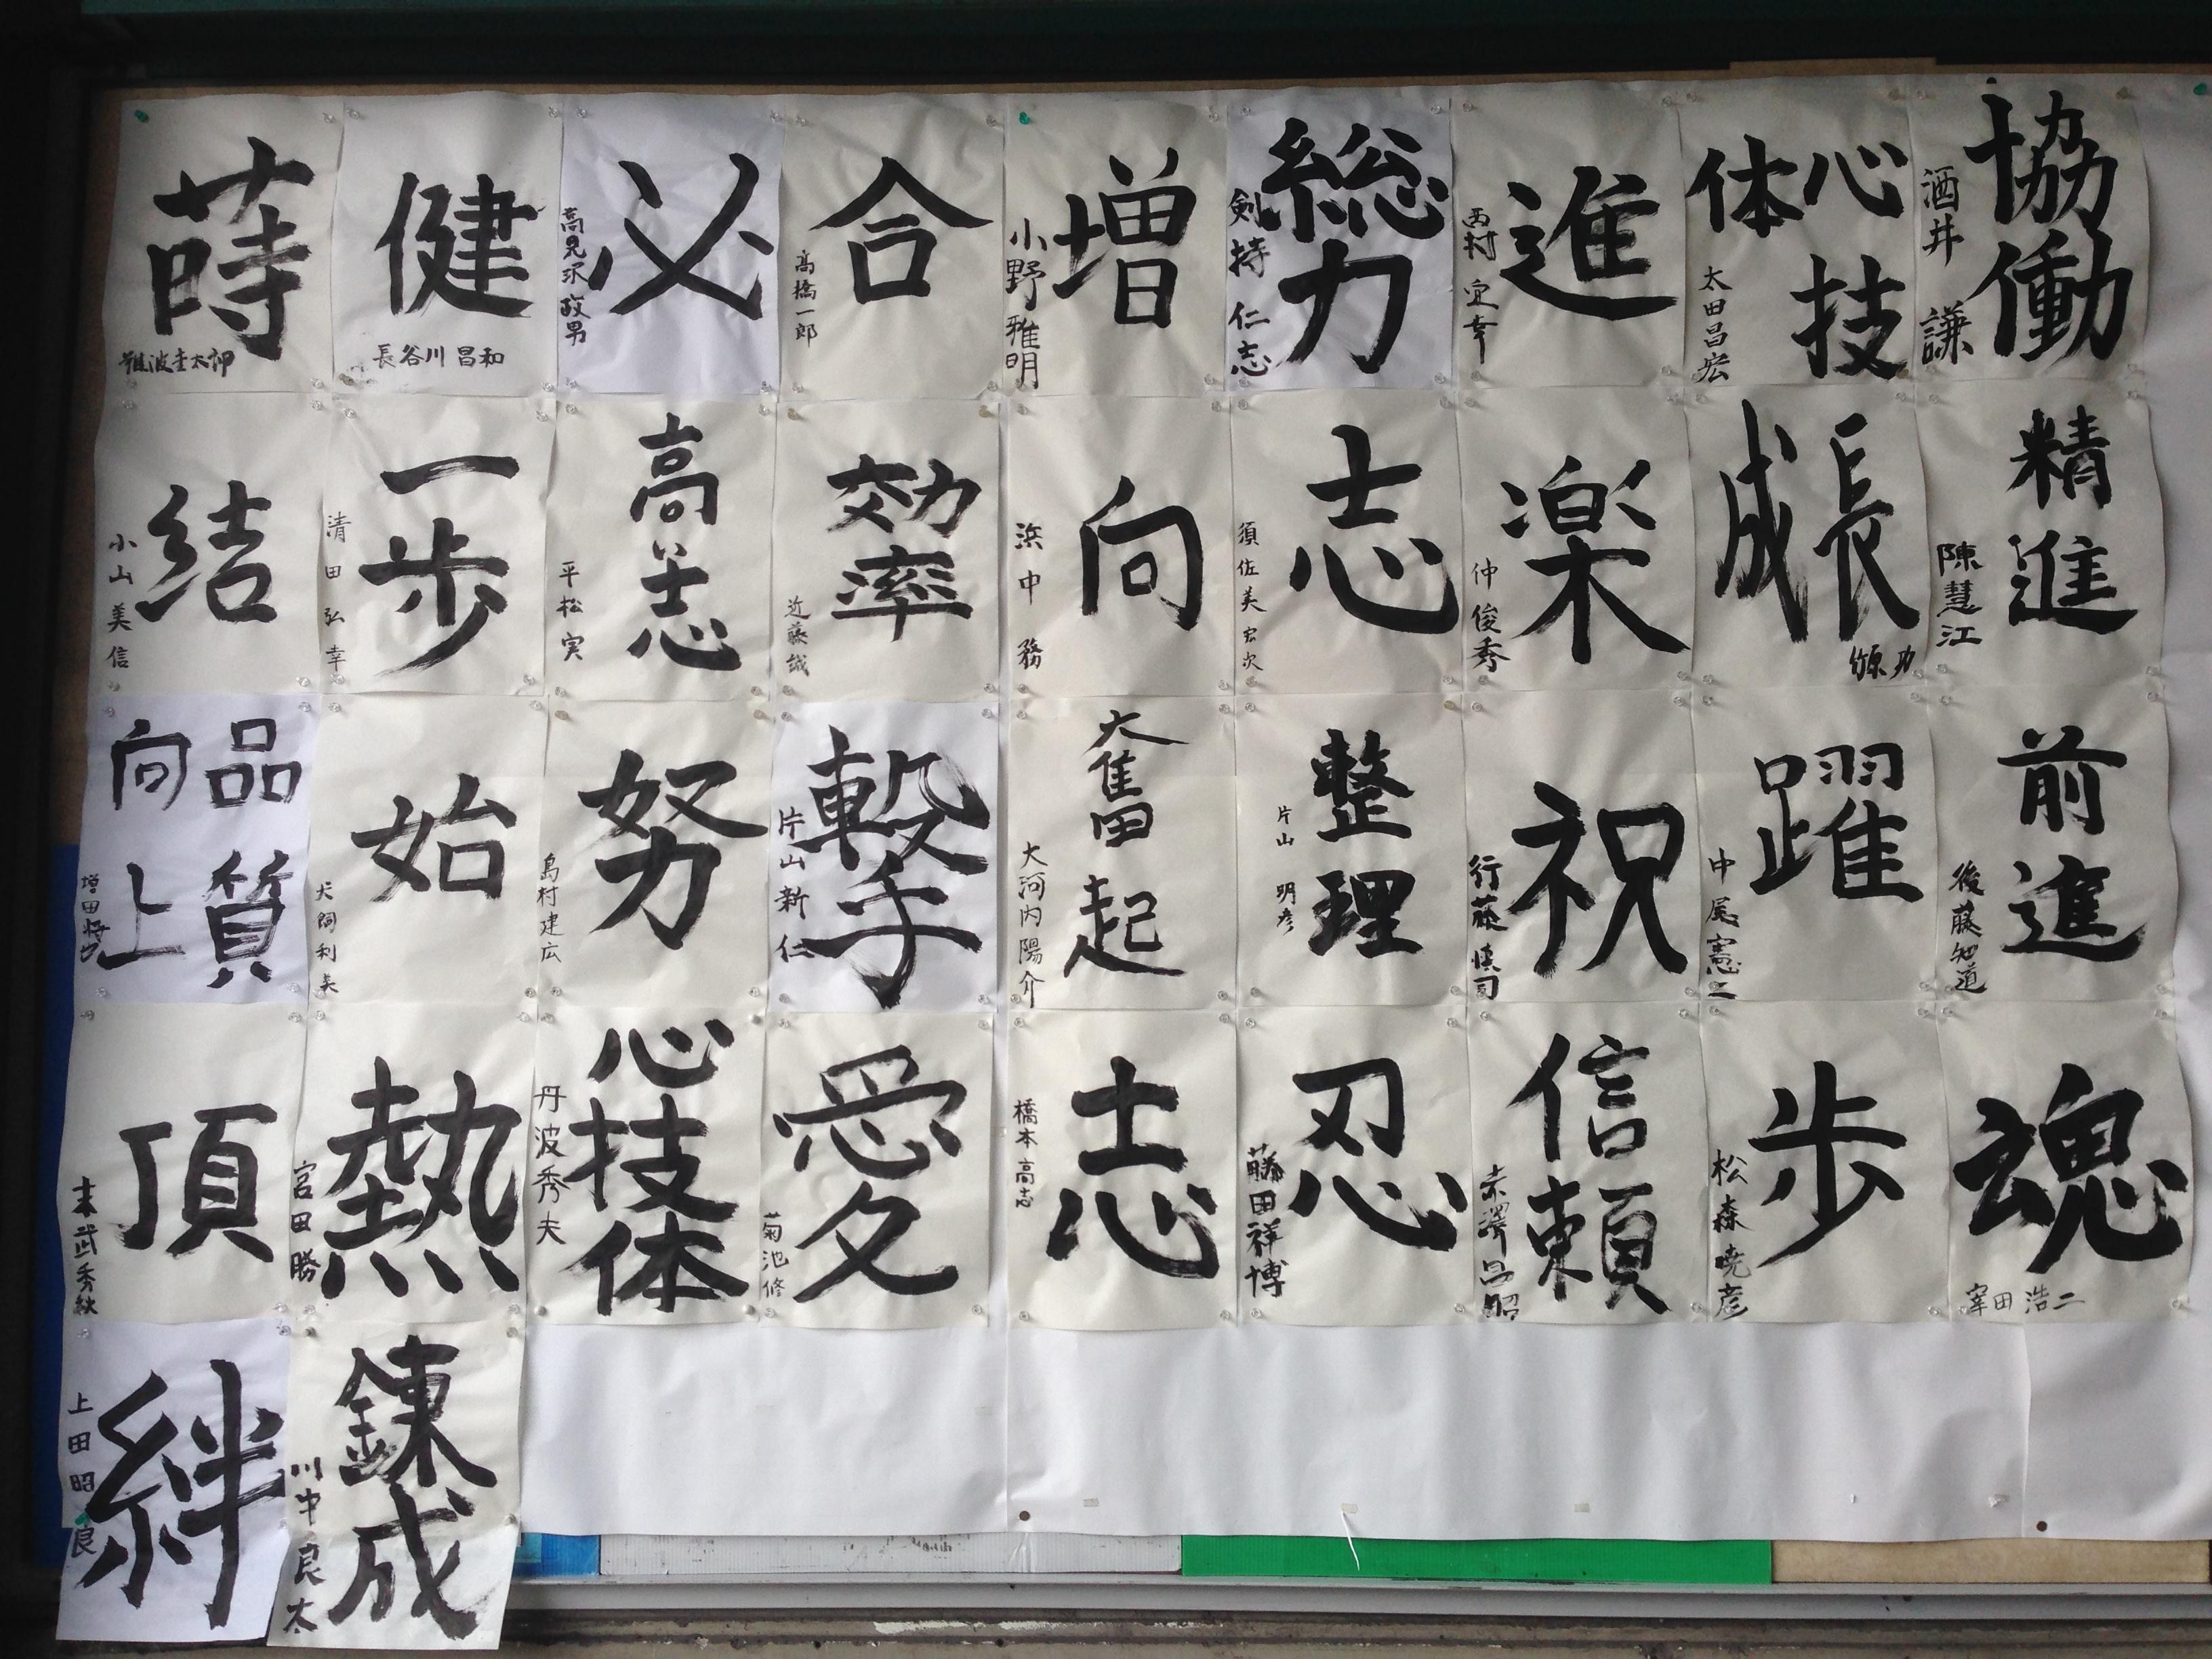 協働
酒井 謙
心技体
太田昌宏
進
西村 宜幸
総力
剣持 仁志
増
小野 雅明
合
高橋一郎
必
高見沢政男
健
長谷川 昌和
蒔
難波圭太郎
精進
陳慧江
成長
楽
仲 俊秀
志
須佐美 宏次
向
浜中 務
効率
近藤 誠
高志
平松 実
一歩
清田 弘幸
結
小山美信
前進
後藤知道
躍
中尾憲二
祝
行藤 慎司
整理
片山 明彦
大奮起
大河内陽介
撃
片山新 仁
努
島村建広
始
犬飼利夫
品質向上
魂
窪田 浩二
歩
松森 暁彦
信頼
赤澤昌昭
忍
藤田祥博
志
橋本 高志
愛
菊池 修
心技体
丹波秀夫
熱
宮田 勝
頂
末武秀秋
錬成
川中良太
絆
上田昭良